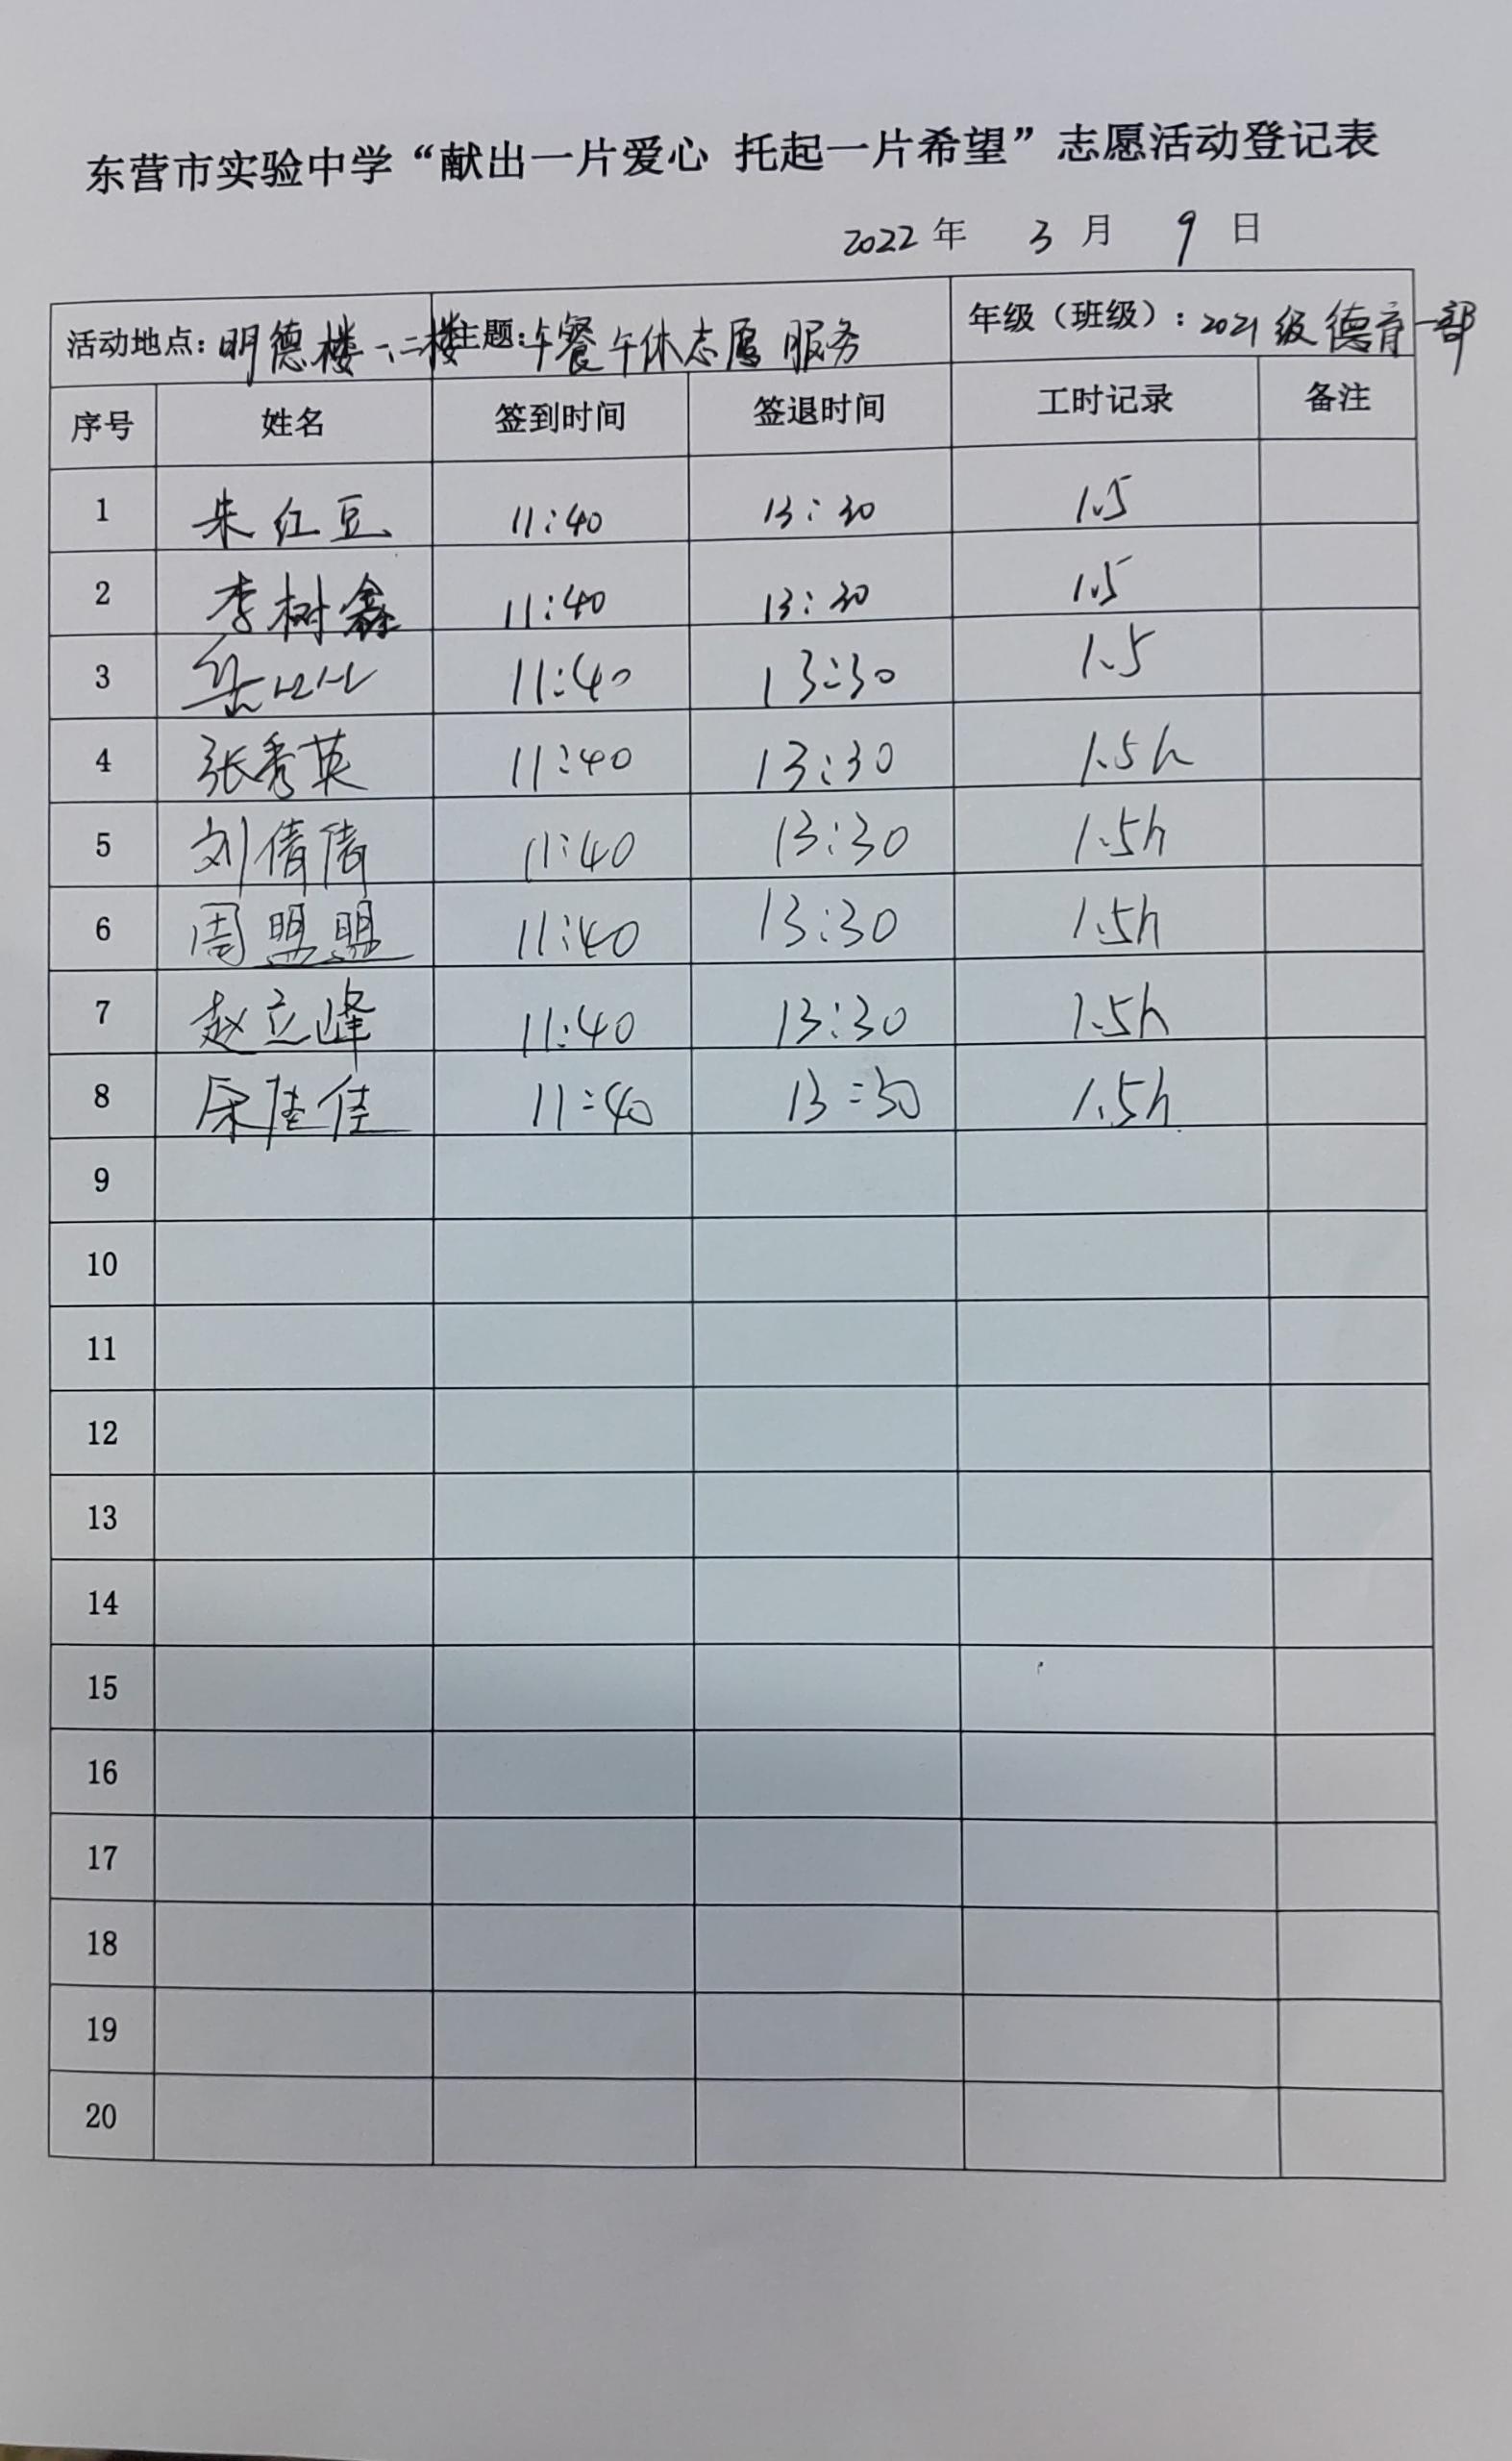 东营市实验中学“献出一片爱心 托起一片希望”志愿活动登记表
2022 年 3 月 9 日
活动地点：明德楼一、二楼 主题：午餐午休志愿服务 年级（班级）：2021级德育一部
序号 姓名 签到时间 签退时间 工时记录 备注
1 朱红豆 11:40 13:30 1.5
2 李树鑫 11:40 13:30 1.5
3 岳 11:40 13:30 1.5
4 张秀英 11:40 13:30 1.5h
5 刘倩倩 11:40 13:30 1.5h
6 周盟盟 11:40 13:30 1.5h
7 赵立峰 11:40 13:30 1.5h
8 佳佳 11:40 13:30 1.5h
9
10
11
12
13
14
15
16
17
18
19
20